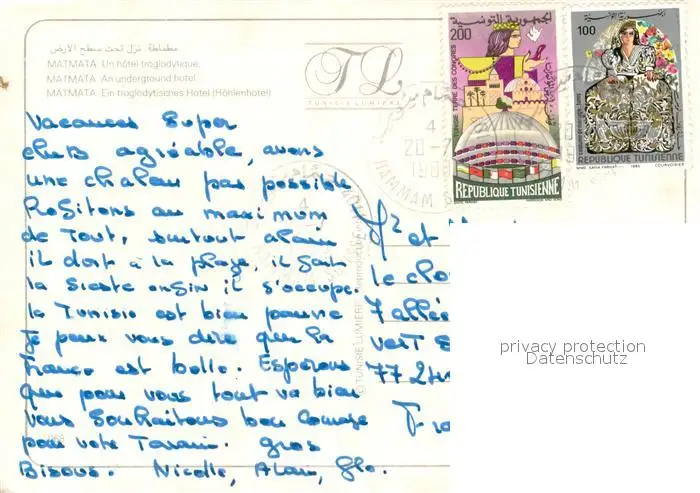 مطماطة نزل تحت سطح الأرض
MATMATA Un hôtel troglodytique.
MATMATA An underground hotel
MATMATA Ein troglodytisches Hotel (Höhlenhotel)
TL
TUNISIE LUMIERE
الجمهورية التونسية
200
TUNISIE TERRE DES CONGRES
REPUBLIQUE TUNISIENNE
100
REPUBLIQUE TUNISIENNE
1985
COURVOISIER
4
20-7
HAMMAM
Vacances Super
club agréable, avons
une chaleur pas possible
Profitons au maximum
de tout, surtout alain
il dort à la plage, il fait
la sieste enfin il s'occupe.
la Tunisie est bien pauvre
Je peux vous dire que la
France est belle. Esperons
que pour vous tout va bien
vous souhaitons bon courage
pour votre Terrain. gros
Bisous. Nicolle, Alain, Flo.
© TUNISIE LUMIERE
et
le clo
7 allée
vert
77 2
Fra
privacy protection
Datenschutz